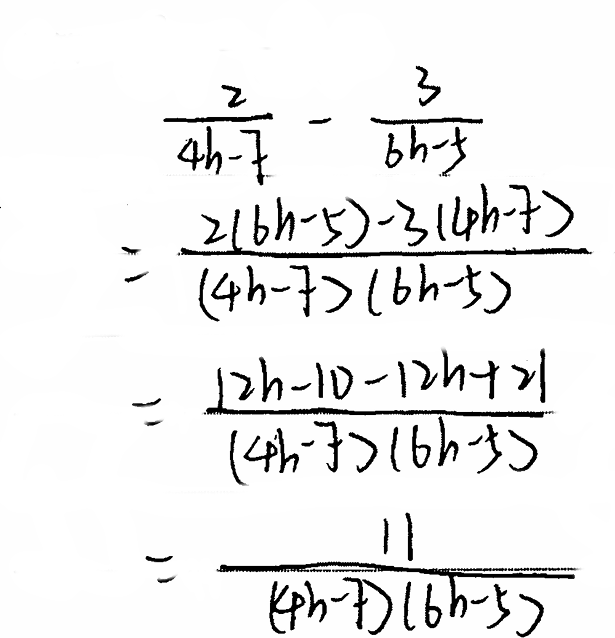 \frac{2}{4h-7} - \frac{3}{6h-5}
= \frac{2(6h-5)-3(4h-7)}{(4h-7)(6h-5)}
= \frac{12h-10-12h+21}{(4h-7)(6h-5)}
= \frac{11}{(4h-7)(6h-5)}